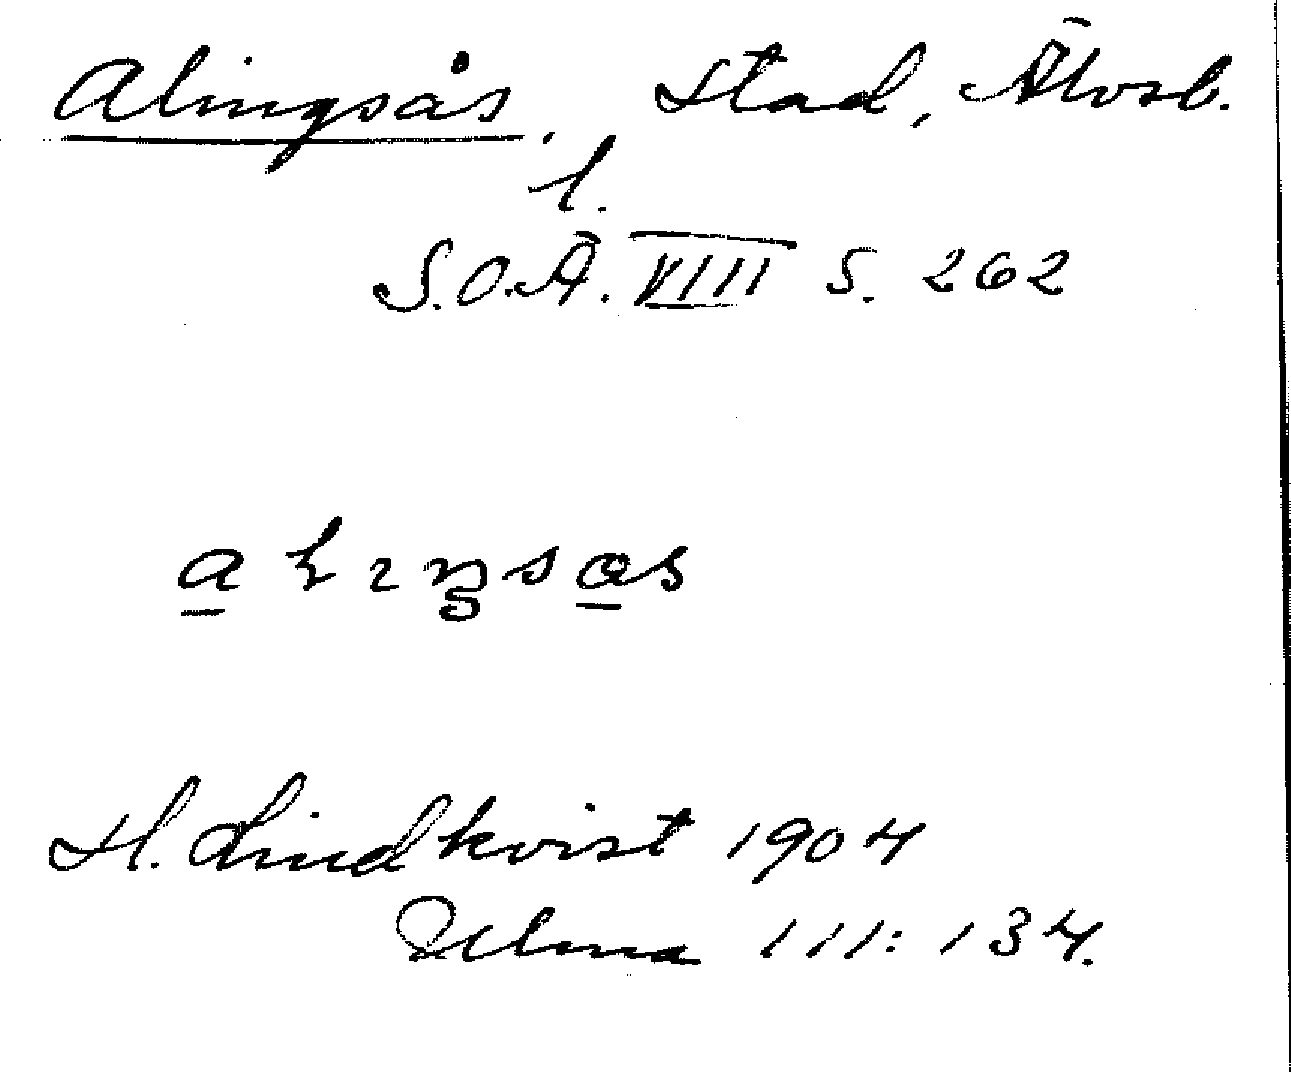 Alingsås. Stad, Älvsb.
l.
S.O.Ä. VIII S. 262
H. Lindkvist 1904
Ulma 111: 134.